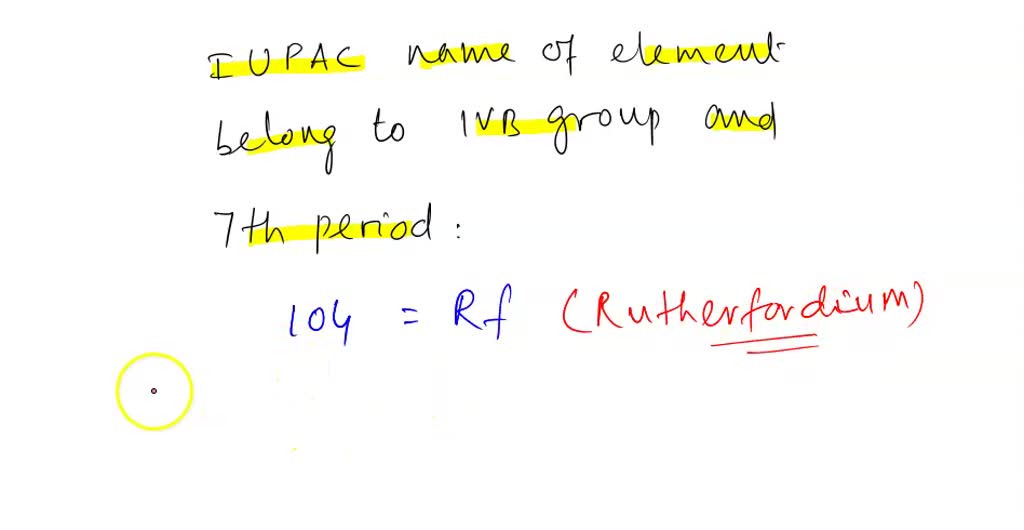 IUPAC name of element
belong to IVB group and
7th period :
104 = Rf (Rutherfordium)